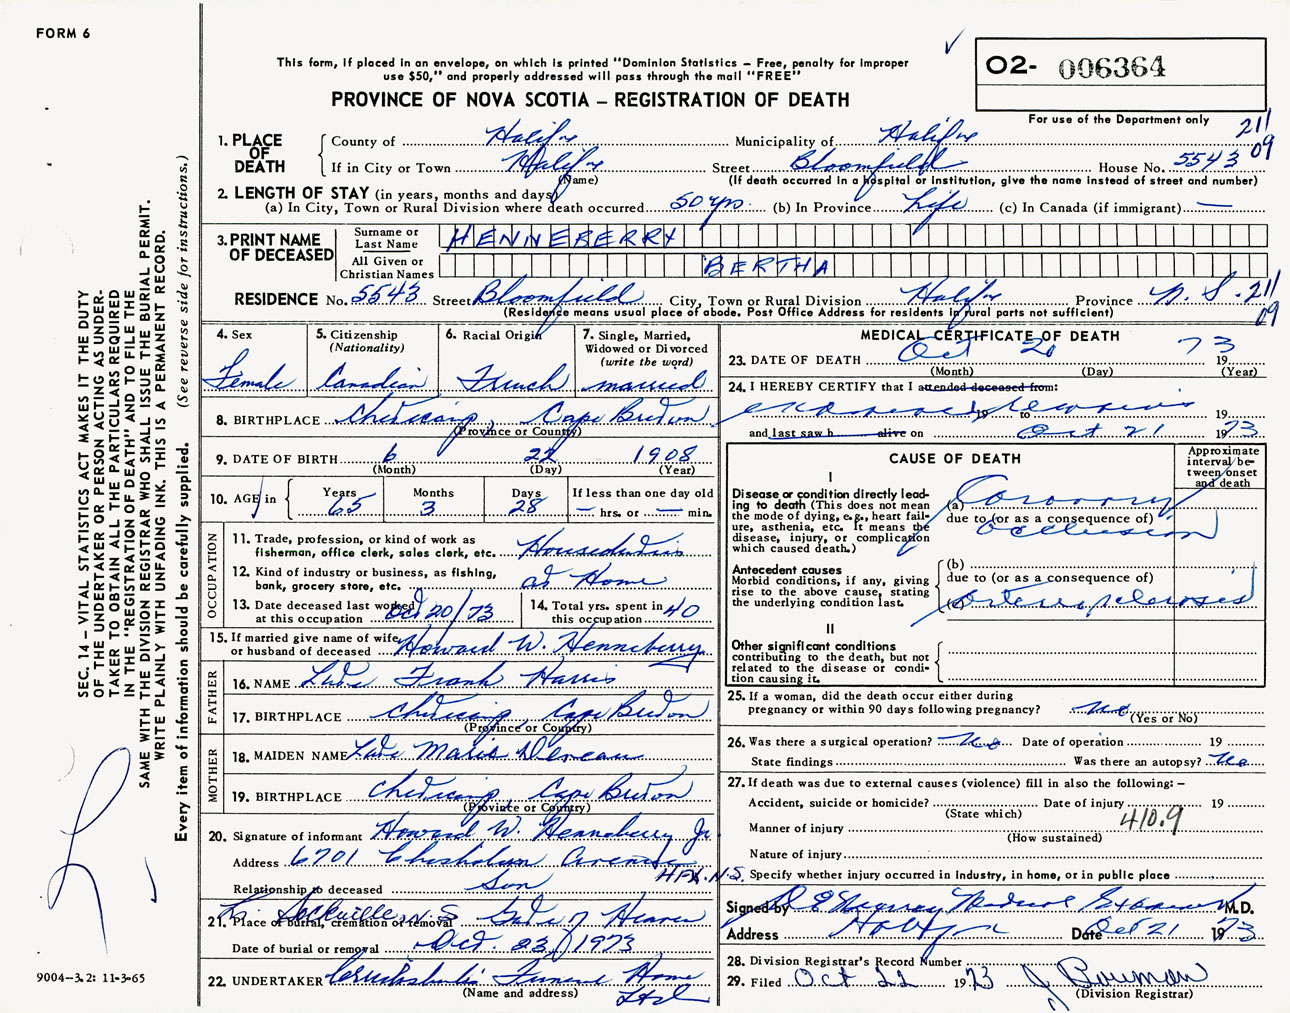 FORM 6
This form, if placed in an envelope, on which is printed "Dominion Statistics – Free, penalty for improper
use $50," and properly addressed will pass through the mail "FREE"
PROVINCE OF NOVA SCOTIA – REGISTRATION OF DEATH
O2- 006364
For use of the Department only
211
09
1. PLACE OF DEATH County of Halifax Municipality of Halifax
If in City or Town Halifax Street Bloomfield House No. 5543
(Name) (If death occurred in a hospital or institution, give the name instead of street and number)
2. LENGTH OF STAY (in years, months and days)
(a) In City, Town or Rural Division where death occurred 50 yrs. (b) In Province Life (c) In Canada (if immigrant) —
3. PRINT NAME OF DECEASED Surname or Last Name HENNEBERRY
All Given or Christian Names BERTHA
RESIDENCE No. 5543 Street Bloomfield City, Town or Rural Division Halifax Province N. S. 211
09
(Residence means usual place of abode. Post Office Address for residents in rural parts not sufficient)
4. Sex Female
5. Citizenship (Nationality) Canadian
6. Racial Origin French
7. Single, Married, Widowed or Divorced (write the word) married
8. BIRTHPLACE Cheticamp, Cape Breton
(Province or Country)
9. DATE OF BIRTH 6 22 1908
(Month) (Day) (Year)
10. AGE in Years 65 Months 3 Days 28 If less than one day old — hrs. or — min.
OCCUPATION
11. Trade, profession, or kind of work as
fisherman, office clerk, sales clerk, etc. Houseduties
12. Kind of industry or business, as fishing,
bank, grocery store, etc. at Home
13. Date deceased last worked at this occupation Oct 20/73
14. Total yrs. spent in this occupation 40
15. If married give name of wife or husband of deceased Howard W. Henneberry
FATHER
16. NAME Frank Harris
17. BIRTHPLACE Cheticamp, Cape Breton
(Province or Country)
MOTHER
18. MAIDEN NAME Marie
19. BIRTHPLACE Cheticamp Cape Breton
(Province or Country)
20. Signature of informant Howard W. Henneberry Jr
Address 6701 Chisholm Avenue
HFX. N.S.
Relationship to deceased Son
21. Place of burial, cremation or removal Sackville, N.S. Gate of Heaven
Date of burial or removal Oct. 23, 1973
22. UNDERTAKER Cruikshank's Funeral Home
(Name and address) Ltd
MEDICAL CERTIFICATE OF DEATH
23. DATE OF DEATH Oct 20 1973
(Month) (Day) (Year)
24. I HEREBY CERTIFY that I attended deceased from:
19 to 19
and last saw h alive on Oct 21 1973
CAUSE OF DEATH
Approximate interval between onset and death
I
Disease or condition directly leading to death (This does not mean the mode of dying, e.g., heart failure, asthenia, etc. It means the disease, injury, or complication which caused death.)
(a) Coronary
due to (or as a consequence of)
occlusion
Antecedent causes
Morbid conditions, if any, giving rise to the above cause, stating the underlying condition last.
(b)
due to (or as a consequence of)
(c) Arteriosclerosis
II
Other significant conditions
contributing to the death, but not related to the disease or condition causing it.
25. If a woman, did the death occur either during
pregnancy or within 90 days following pregnancy? No
(Yes or No)
26. Was there a surgical operation? No Date of operation 19
State findings Was there an autopsy? No
27. If death was due to external causes (violence) fill in also the following: –
Accident, suicide or homicide? Date of injury 19
(State which) 410.9
Manner of injury
(How sustained)
Nature of injury
Specify whether injury occurred in industry, in home, or in public place
Signed by Medical Examiner M.D.
Address Halifax Date Oct 21 1973
28. Division Registrar's Record Number
29. Filed Oct 22 1973 J Bowman
(Division Registrar)
SEC. 14 – VITAL STATISTICS ACT MAKES IT THE DUTY
OF THE UNDERTAKER OR PERSON ACTING AS UNDER-
TAKER TO OBTAIN ALL THE PARTICULARS REQUIRED
IN THE "REGISTRATION OF DEATH" AND TO FILE THE
SAME WITH THE DIVISION REGISTRAR WHO SHALL ISSUE THE BURIAL PERMIT.
WRITE PLAINLY WITH UNFADING INK. THIS IS A PERMANENT RECORD.
Every item of information should be carefully supplied. (See reverse side for instructions.)
9004–3.2: 11-3-65